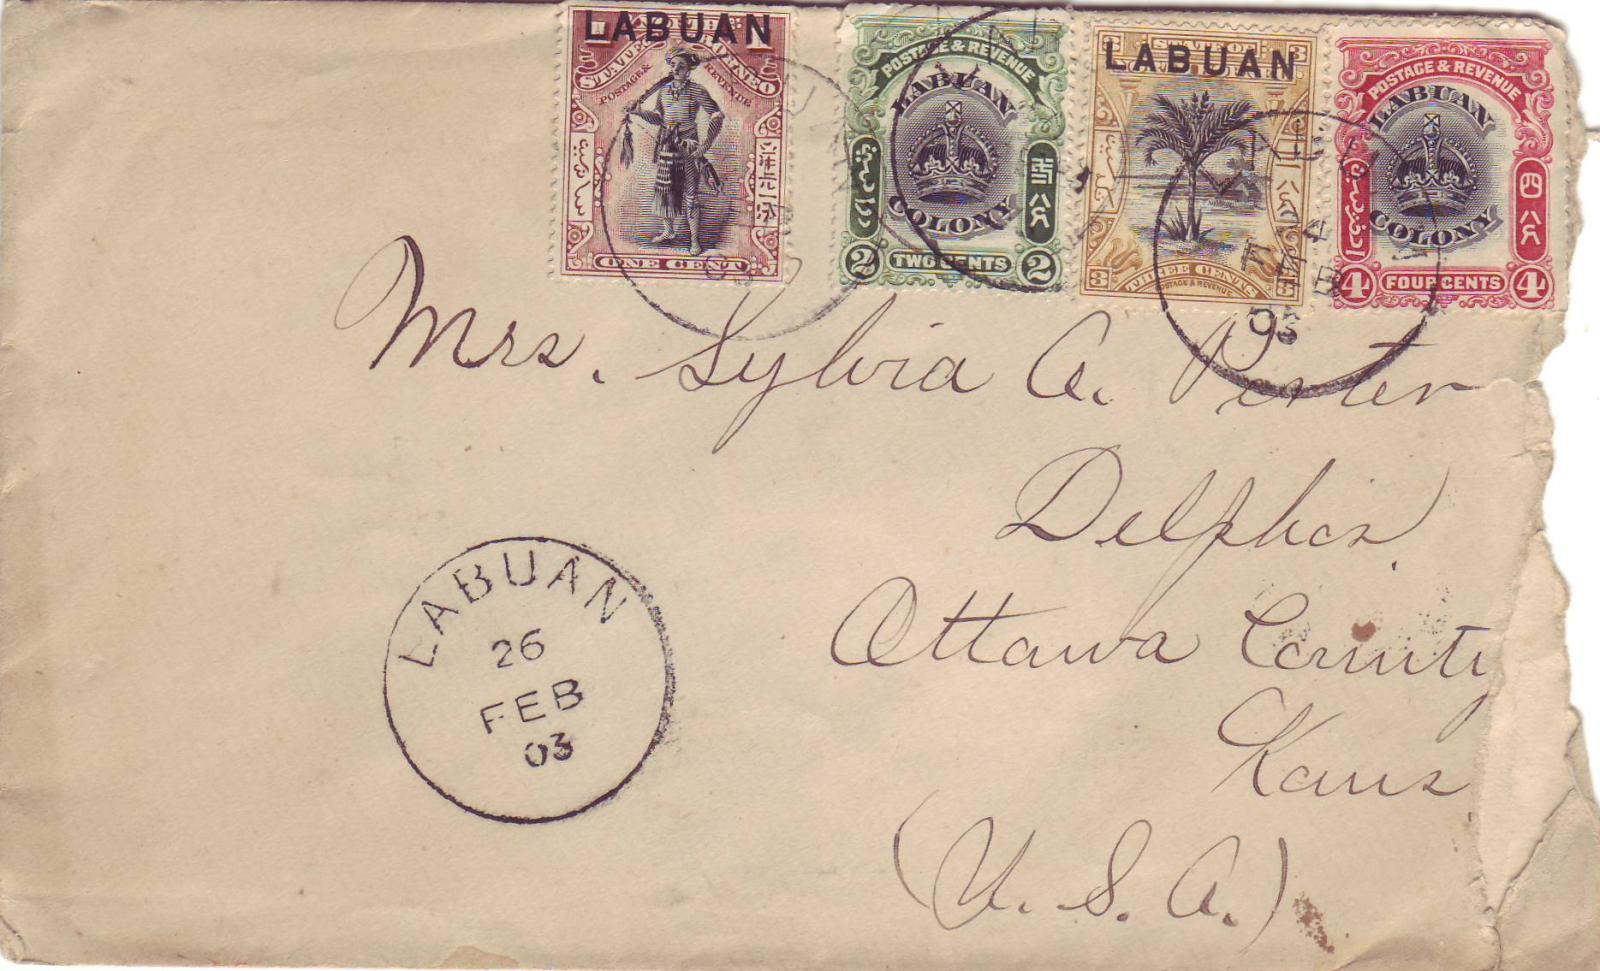 LABUAN
STATE OF NORTH BORNEO
POSTAGE & REVENUE
ONE CENT
POSTAGE & REVENUE
LABUAN
COLONY
2 TWO CENTS 2
LABUAN
3 3
3 THREE CENTS
POSTAGE & REVENUE
POSTAGE & REVENUE
LABUAN
COLONY
四
4 FOUR CENTS 4
Mrs. Sylvia A.
Delphos
Ottawa County
Kans
(U. S. A.)
LABUAN
26
FEB
03